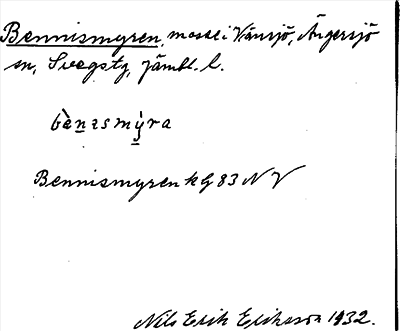 Bennismyren, mosse i Vänsjö, Ängersjö
sn, Svegs tg, Jämtl. l.
bènɪsmýra
Bennismyren kG 83 NV
Nils Erik Eriksson 1932.